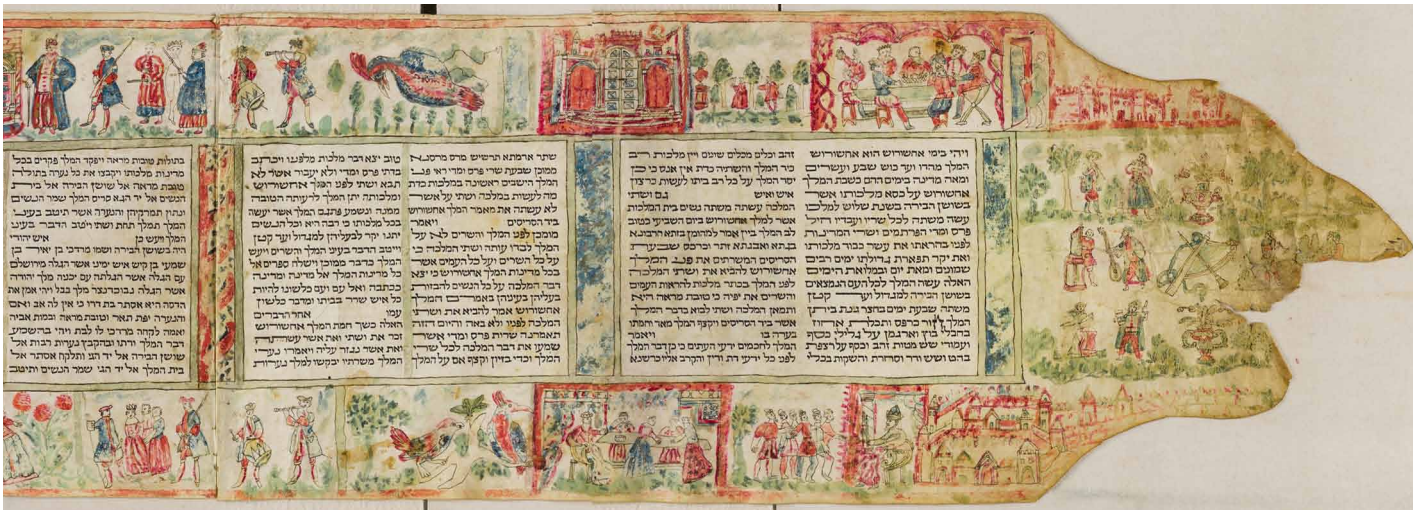 ויהי בימי אחשורוש הוא אחשורוש
המלך מהדו ועד כוש שבע ועשרים
ומאה מדינה בימים ההם כשבת המלך
אחשורוש על כסא מלכותו אשר
בשושן הבירה בשנת שלוש למלכו
עשה משתה לכל שריו ועבדיו חיל
פרס ומדי הפרתמים ושרי המדינות
לפניו בהראתו את עשר כבוד מלכותו
ואת יקר תפארת גדולתו ימים רבים
שמונים ומאת יום ובמלואת הימים
האלה עשה המלך לכל העם הנמצאים
בשושן הבירה למגדול ועד קטן
משתה שבעת ימים בחצר גנת ביתן
המלך חור כרפס ותכלת אחוז
בחבלי בוץ וארגמן על גלילי כסף
ועמודי שש מטות זהב וכסף על רצפת
בהט ושש ודר וסחרת והשקות בכלי
זהב וכלים מכלים שונים ויין מלכות רב
כיד המלך והשתיה כדת אין אנס כי כן
יסד המלך על כל רב ביתו לעשות כרצון
איש ואיש גם ושתי
המלכה עשתה משתה נשים בית המלכות
אשר למלך אחשורוש ביום השביעי כטוב
לב המלך ביין אמר למהומן בזתא חרבונא
בגתא ואבגתא זתר וכרכס שבעת
הסריסים המשרתים את פני המלך
אחשורוש להביא את ושתי המלכה
לפני המלך בכתר מלכות להראות העמים
והשרים את יפיה כי טובת מראה היא
ותמאן המלכה ושתי לבוא בדבר המלך
אשר ביד הסריסים ויקצף המלך מאד וחמתו
בערה בו ויאמר
המלך לחכמים ידעי העתים כי כן דבר המלך
לפני כל ידעי דת ודין והקרב אליו כרשנא
שתר אדמתא תרשיש מרס מרסנא
ממוכן שבעת שרי פרס ומדי ראי פני
המלך הישבים ראשונה במלכות כדת
מה לעשות במלכה ושתי על אשר
לא עשתה את מאמר המלך אחשורוש
ביד הסריסים ויאמר
מומכן לפני המלך והשרים לא על
המלך לבדו עותה ושתי המלכה כי
על כל השרים ועל כל העמים אשר
בכל מדינות המלך אחשורוש כי יצא
דבר המלכה על כל הנשים להבזות
בעליהן בעיניהן באמרם המלך
אחשורוש אמר להביא את ושתי
המלכה לפניו ולא באה והיום הזה
תאמרנה שרות פרס ומדי אשר
שמעו את דבר המלכה לכל שרי
המלך וכדי בזיון וקצף אם על המלך
טוב יצא דבר מלכות מלפניו ויכתב
בדתי פרס ומדי ולא יעבור אשר לא
תבא ושתי לפני המלך אחשורוש
ומלכותה יתן המלך לרעותה הטובה
ממנה ונשמע פתגם המלך אשר יעשה
בכל מלכותו כי רבה היא וכל הנשים
יתנו יקר לבעליהן למגדול ועד קטן
וייטב הדבר בעיני המלך והשרים ויעש
המלך כדבר ממוכן וישלח ספרים אל
כל מדינות המלך אל מדינה ומדינה
ככתבה ואל עם ועם כלשונו להיות
כל איש שרר בביתו ומדבר כלשון
עמו אחר הדברים
האלה כשך חמת המלך אחשורוש
זכר את ושתי ואת אשר עשתה
ואת אשר נגזר עליה ויאמרו נערי
המלך משרתיו יבקשו למלך נערות
בתולות טובות מראה ויפקד המלך פקדים בכל
מדינות מלכותו ויקבצו את כל נערה בתולה
טובת מראה אל שושן הבירה אל בית
הנשים אל יד הגא סריס המלך שמר הנשים
ונתון תמרקיהן והנערה אשר תיטב בעיני
המלך תמלך תחת ושתי ויטב הדבר בעיני
המלך ויעש כן איש יהודי
היה בשושן הבירה ושמו מרדכי בן יאיר בן
שמעי בן קיש איש ימיני אשר הגלה מירושלם
עם הגלה אשר הגלתה עם יכניה מלך יהודה
אשר הגלה נבוכדנצר מלך בבל ויהי אמן את
הדסה היא אסתר בת דדו כי אין לה אב ואם
והנערה יפת תאר וטובת מראה ובמות אביה
ואמה לקחה מרדכי לו לבת ויהי בהשמע
דבר המלך ודתו ובהקבץ נערות רבות אל
שושן הבירה אל יד הגי ותלקח אסתר אל
בית המלך אל יד הגי שמר הנשים ותיטב